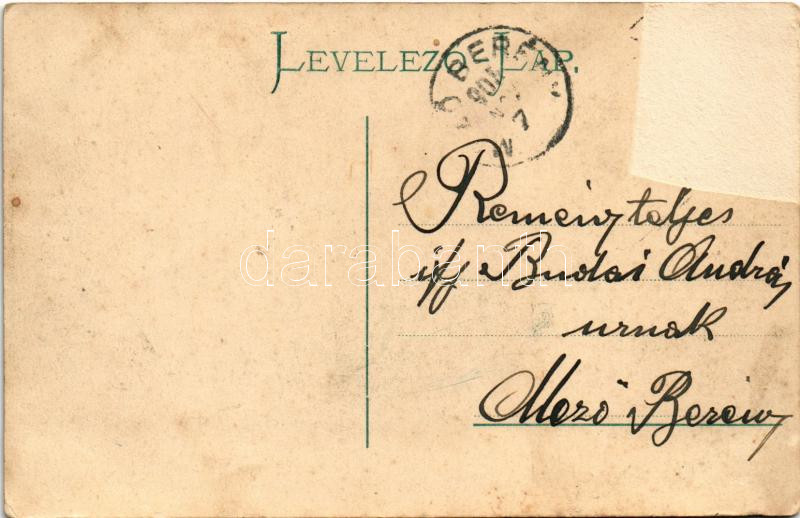 LEVELEZŐ LAP.
Ő BERÉN
7
Remeiny teljes
ifj Budai András
urnak
Mező Bereiny
darabanth